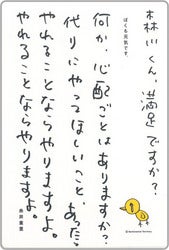 森川くん、満足ですか?
ぼくも元気です。
何か、心配ごとはありますか?
代りにやってほしいこと、あったら
やれることならやりますよ。
やれることならやりますよ。
糸井重里